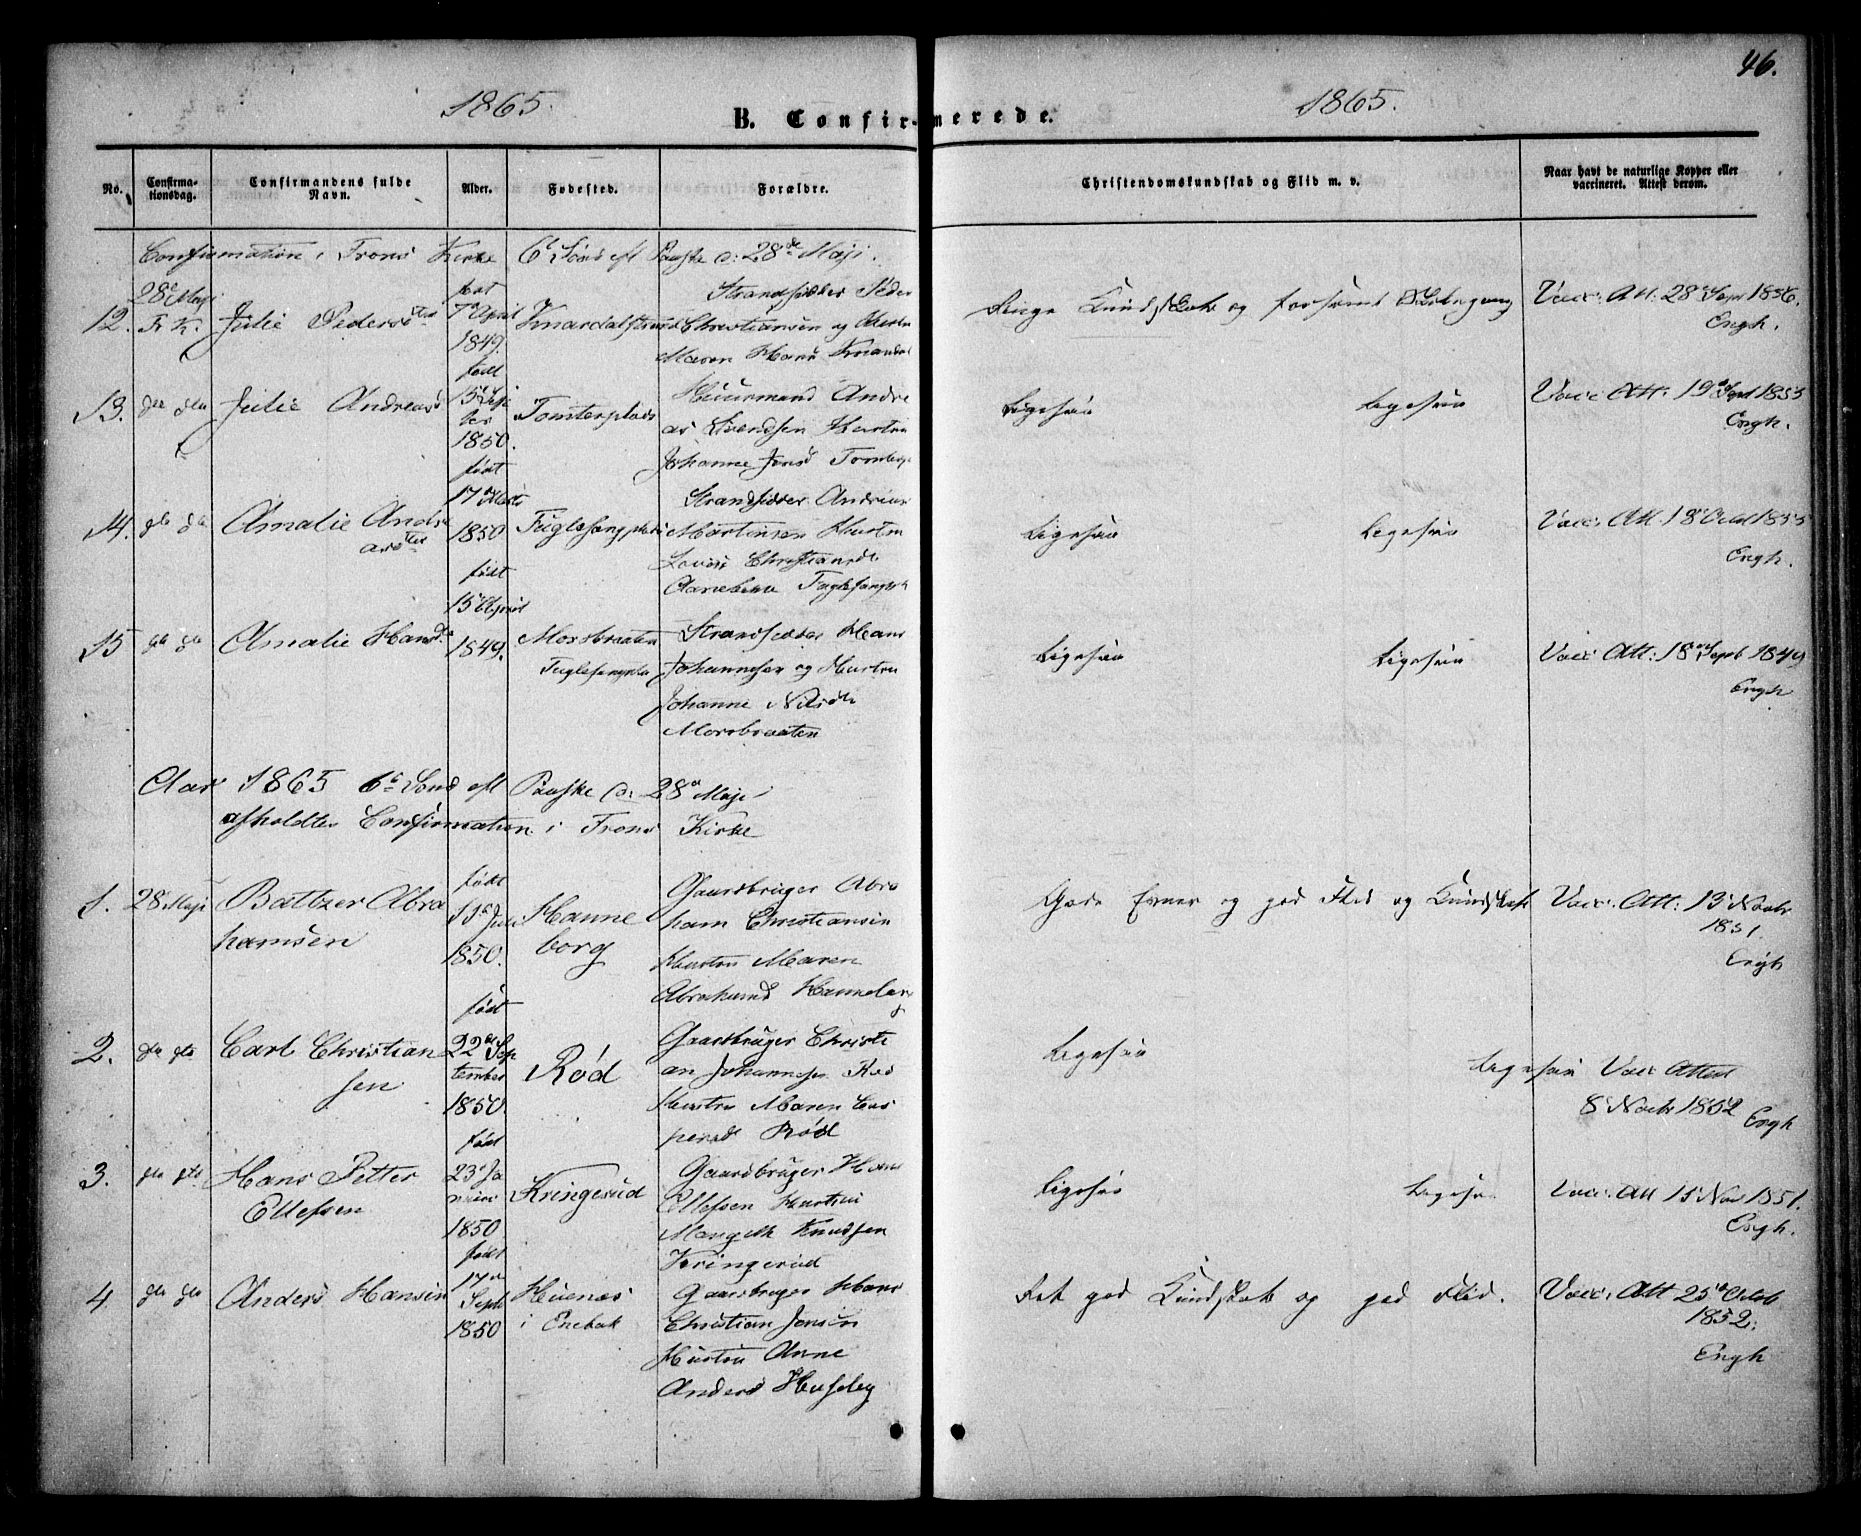 46.
1865.
1865.
B. Confirmerede.
No.
Confirma-
tionsdag.
Confirmandens fulde
Navn.
Alder.
Fødested.
Forældre.
Christendomskundskab og Flid m. v.
Naar havt de naturlige Kopper eller
vaccineret. Attest derom.
Confirmation i Frons Kirke 6te Sönd eft Paaske d: 28de Maji.
12.
28de Maji
Fr K.
Julie Peders
født
7de April
1849.
Strandsidder Peder
Christiansen og
Maren Hans
Kundskab og
Vacc. Att. 28de Sept 1856.
Engh.
13.
do do
Julie Andreasd
født
1850.
Tomterplads
Huusmand Andre
as Svendsen Hustru
Johanne Jensd
Ligesaa
Ligesaa
Vacc Att: 19de Sept 1853
Engh.
14.
do do
Amalie Andre
født
17de Marts
1850
Strandsidder Andreas
Martinsen Hustru
Christiansdt
Ligesaa
Ligesaa
Vacc. Att. 18de Octob 1853
Engh.
15
do do
Amalie Hansd
født
15de April
1849.
Mossbraaten
Strandsidder Hans
Johannesen og Hustru
Johanne Nilsdt
Mossbraaten
Ligesaa
Ligesaa
Vacc Att: 18de Septb 1849
Engh
Aar 1865 6te Sönd eft Paaske d: 28de Maji
afholdtes Confirmation i Frons Kirke
1.
28 Maji
Baltzer Abra
hamsen
født
11de Juli
1850.
Hanne
borg
Gaardbruger Abra
ham Christiansen
Hustru Maren
Abrahamsd Hanneborg
Gode Evner og god Flid og Kundskab
Vacc. Att: 13de Novbr
1851.
Engh
2.
do do
Carl Christian
sen
født
22de Sep
tember
1850.
Rød
Gaardbruger Christi
an Johannesen Rød
Hustru Maren Cas
persd Rød
Ligesaa
Ligesaa
Vacc Attest
8 Novbr 1852
Engh
3.
do do
Hans Petter
Ellefsen
født
23de Ja
nuar
1850
Kringerud
Gaardbruger Hans
Ellefsen Hustru
Margith Knudsen
Kringerud
Ligesaa
Ligesaa
Vacc. Att 15 Nov 1851.
Engh.
4
do do
Anders Hansen
født
17de
Septb
1850
i Enebak
Gaardbruger Hans
Christian Jensen
Hustru Anne
Anders Huseby
Ret god Kundskab og god Flid.
Vacc. Att 25de Octob
1852.
Engh